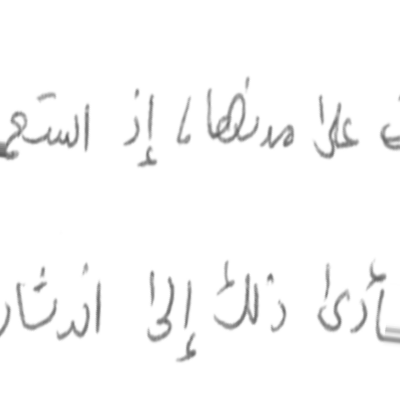 على مدنها، إذ
ـأدى ذلك إلى اندثار